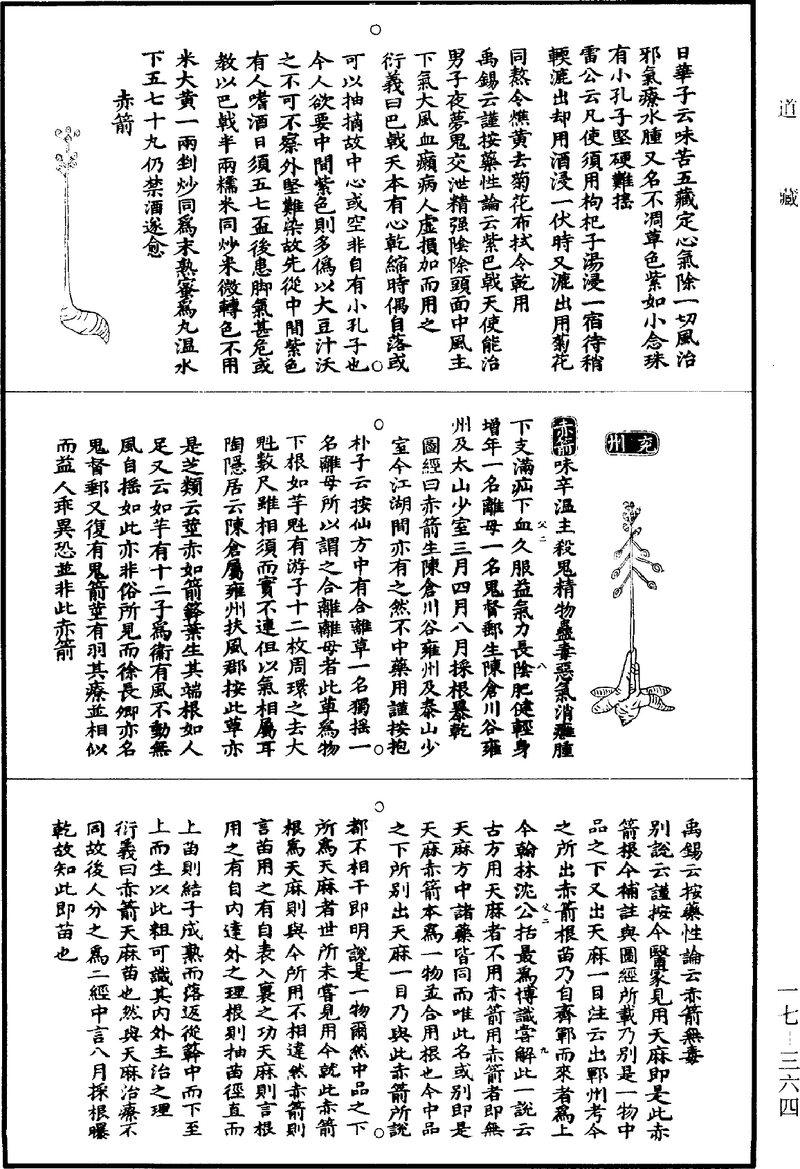 道藏
日華子云味苦五藏定心氣除一切風治
邪氣療水腫又名不凋草色紫如小念珠
有小孔子堅硬難搗
雷公云凡使須用枸杞子湯浸一宿待稍
軟漉出却用酒浸一伏時又漉出用菊花
同熬令燋黃去菊花布拭令乾用
禹錫云謹按藥性論云紫巴戟天使能治
男子夜夢鬼交泄精强陰除頭面中風主
下氣大風血癩病人虛損加而用之
衍義曰巴戟天本有心乾縮時偶自落或
可以抽摘故中心或空非自有小孔子也
今人欲要中間紫色則多僞以大豆汁沃
之不可不察外堅難染故先從中間紫色
有人嗜酒日須五七盃後患脚氣甚危或
教以巴戟半兩糯米同炒米微轉色不用
米大黃一兩剉炒同爲末熟蜜爲丸温水
下五七十九仍禁酒遂愈
赤箭
兖州
赤箭味辛温主殺鬼精物蠱毒惡氣消癰腫
下支滿疝下血久服益氣力長陰肥健輕身
增年一名離母一名鬼督郵生陳倉川谷雍
州及太山少室三月四月八月採根暴乾
圖經曰赤箭生陳倉川谷雍州及泰山少
室今江湖間亦有之然不中藥用謹按抱
朴子云按仙方中有合離草一名獨摇一
名離母所以謂之合離離母者此草爲物
下根如芋魁有游子十二枚周環之去大
魁數尺雖相須而實不連但以氣相屬耳
陶隱居云陳倉屬雍州扶風郡按此草亦
是芝類云莖赤如箭簳葉生其端根如人
足又云如芋有十二子爲衛有風不動無
風自摇如此亦非俗所見而徐長卿亦名
鬼督郵又復有鬼箭莖有羽其療並相似
而益人乖異恐並非此赤箭
父二
八
禹錫云按藥性論云赤箭無毒
別說云謹按今醫家見用天麻即是此赤
箭根今補註與圖經所載乃別是一物中
品之下又出天麻一目注云出鄆州考今
之所出赤箭根苗乃自齊鄆而來者爲上
今翰林沈公括最爲博識嘗解此一說云
古方用天麻者不用赤箭用赤箭者即無
天麻方中諸藥皆同而唯此名或別即是
天麻赤箭本爲一物並合用根也今中品
之下所別出天麻一目乃與此赤箭所說
都不相干即明說是一物爾然中品之下
所爲天麻者世所未嘗見用今就此赤箭
根爲天麻則與今所用不相違然赤箭則
言苗用之有自表入裏之功天麻則言根
用之有自內達外之理根則抽苗徑直而
上苗則結子成熟而落返從簳中而下至
上而生以此粗可識其內外主治之理
衍義曰赤箭天麻苗也然與天麻治療不
同故後人分之爲二經中言八月採根曝
乾故知此即苗也
父二
九
一七—三六四